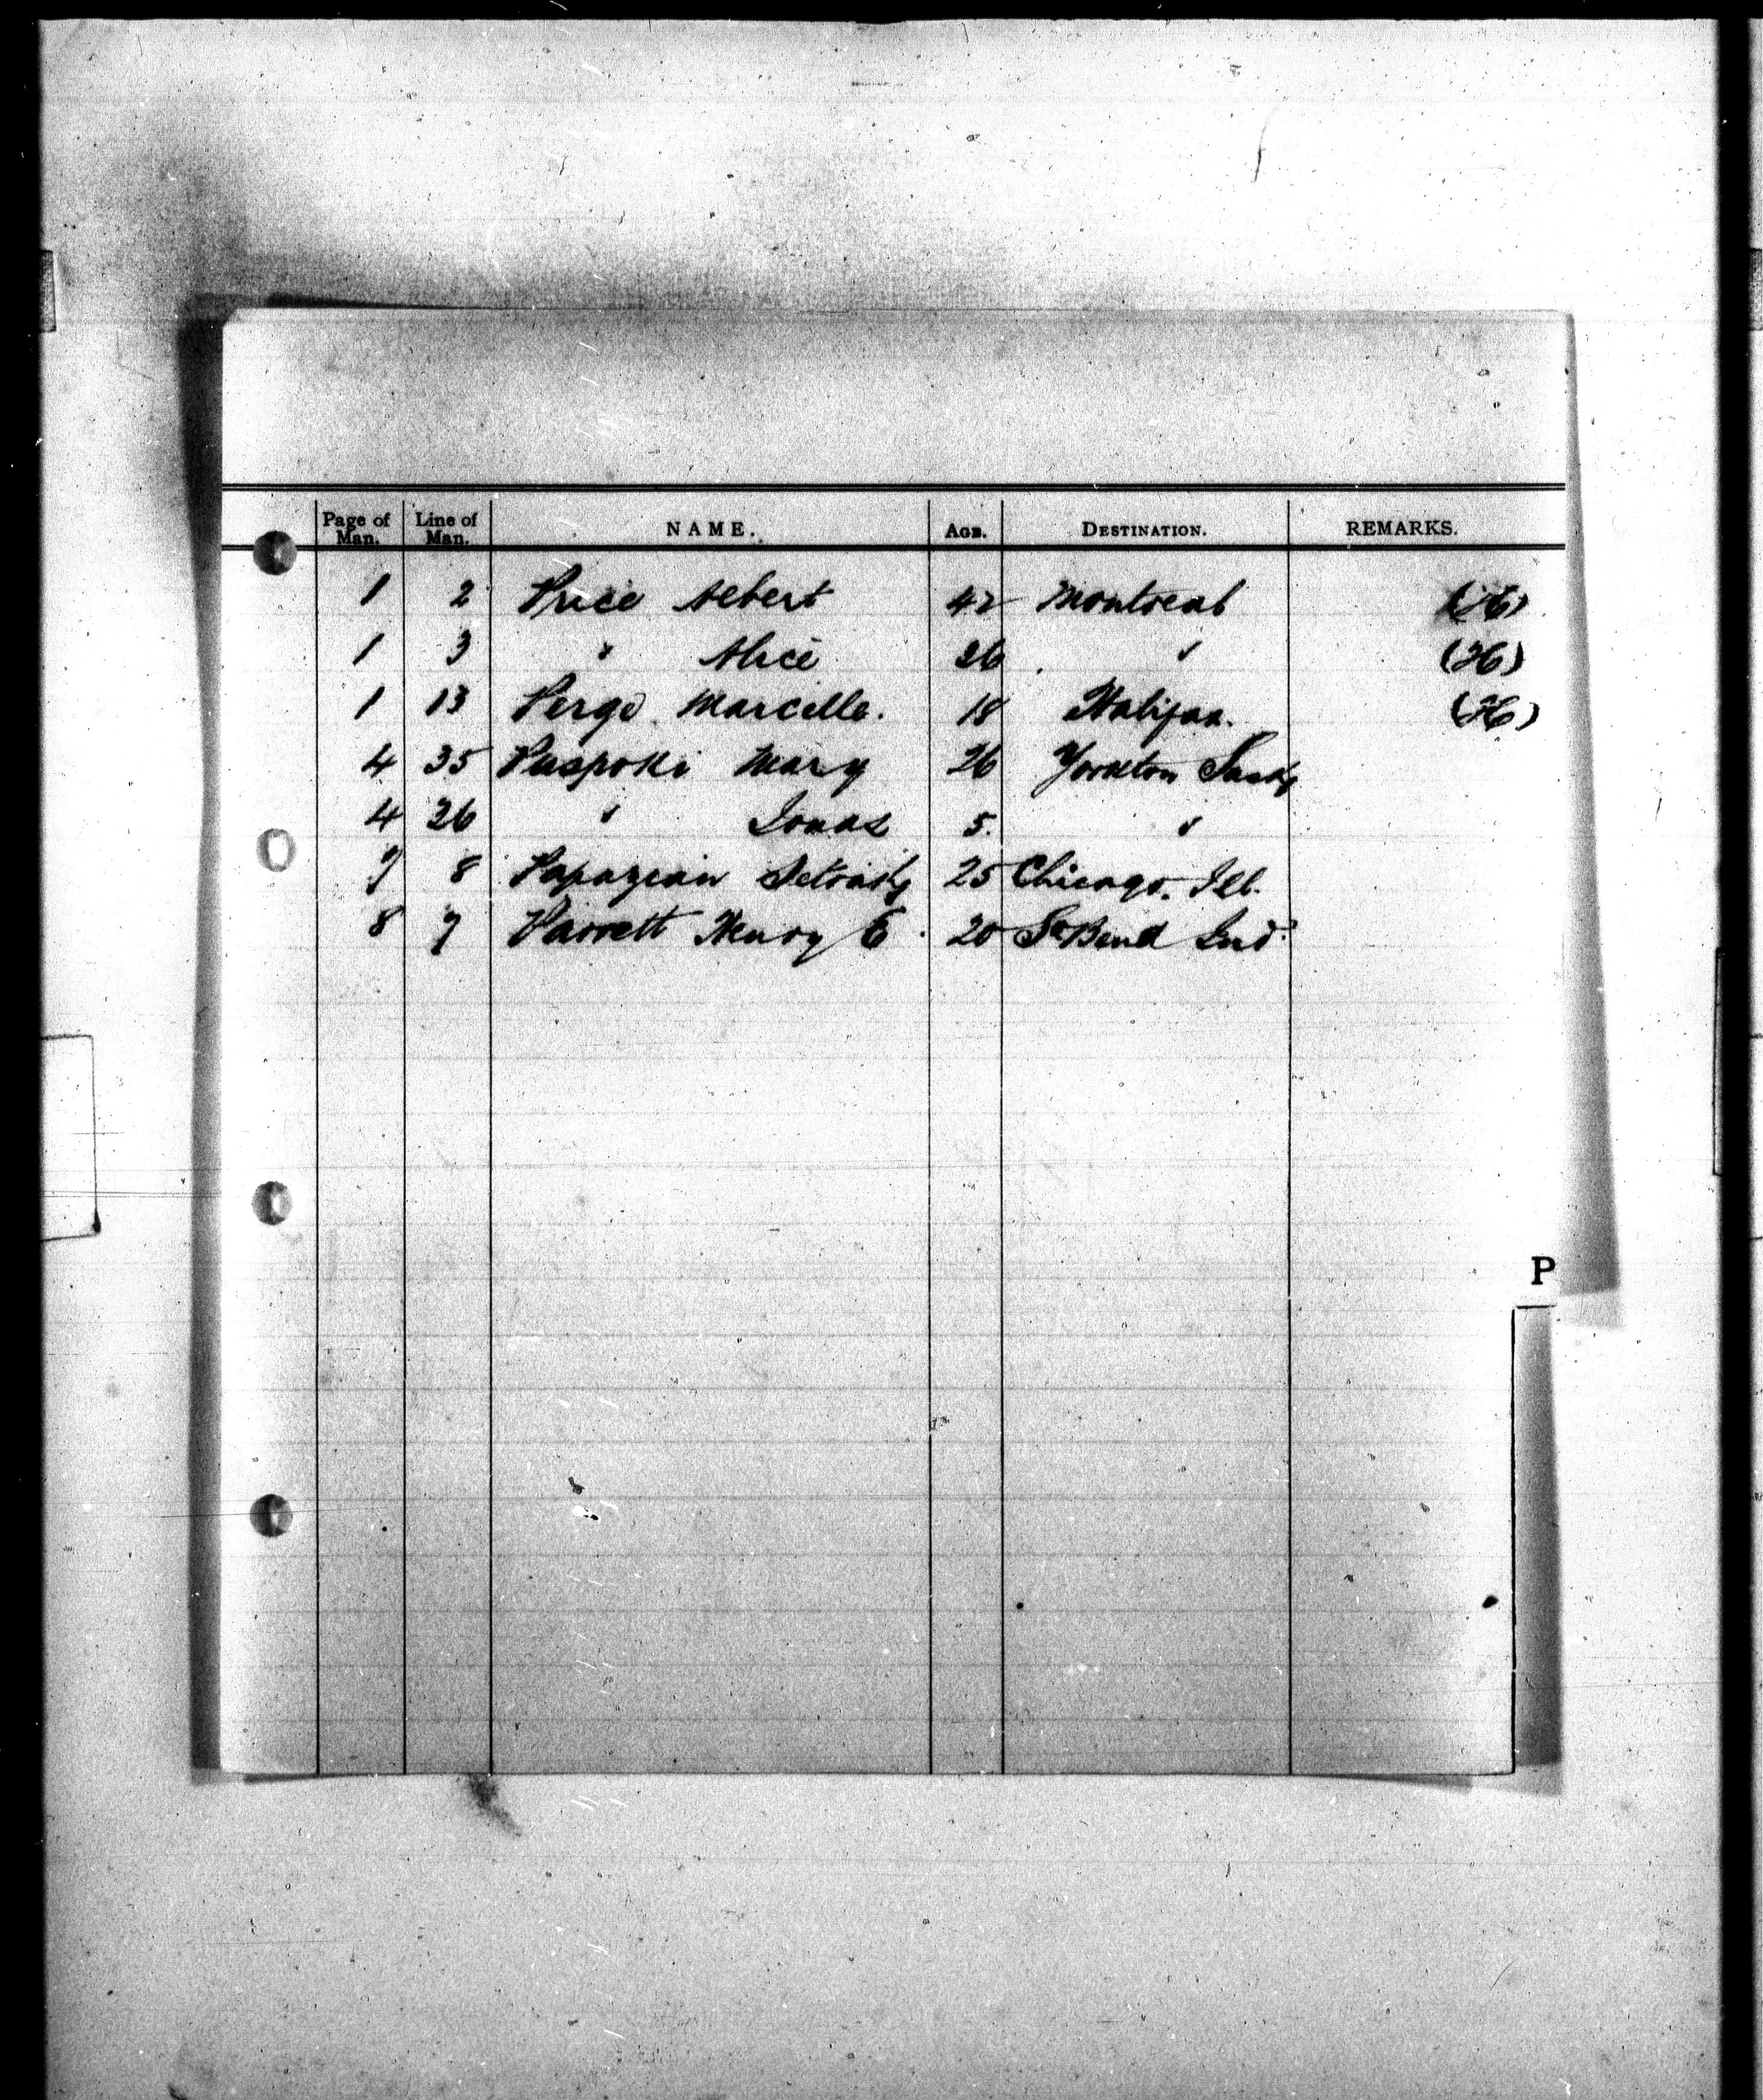 Page of Man. Line of Man. NAME. AGE. DESTINATION. REMARKS.
1 2 Price Albert 42 Montreal (26)
1 3 " Alice 26 " (26)
1 13 Pergo Marcelle. 18 Halifax. (26)
4 35 Puspoki Mary 26 Yorkton Sask
4 26 " Jonas 5. "
7 8 Papazian 25 Chicago. Ill.
8 7 Parrett Henry E. 20 So Bend Ind.
P